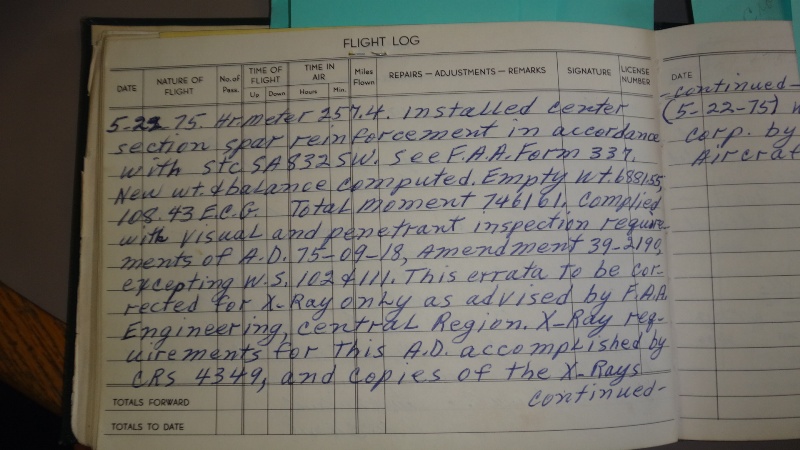 FLIGHT LOG
DATE NATURE OF FLIGHT No. of Pass. TIME OF FLIGHT Up Down TIME IN AIR Hours Min. Miles Flown REPAIRS — ADJUSTMENTS — REMARKS SIGNATURE LICENSE NUMBER
5-22 75. Hr meter 257.4. Installed center
section spar reinforcement in accordance
with stc SA832SW. See F.A.A. Form 337.
New wt. & balance computed. Empty wt. 6881.55,
108.43 E.C.G. Total moment 746161. Complied
with visual and penetrant inspection require-
ments of A.D. 75-09-18, Amendment 39-2190,
excepting W.S. 102 & 111. This errata to be cor-
rected for X-Ray only as advised by F.A.A.
Engineering, central Region. X-Ray req-
uirements for this A.D. accomplished by
CRS 4349, and copies of the X-Rays
continued-
TOTALS FORWARD
TOTALS TO DATE
DATE
-continued-
(5-22-75)
corp. by
Aircraf